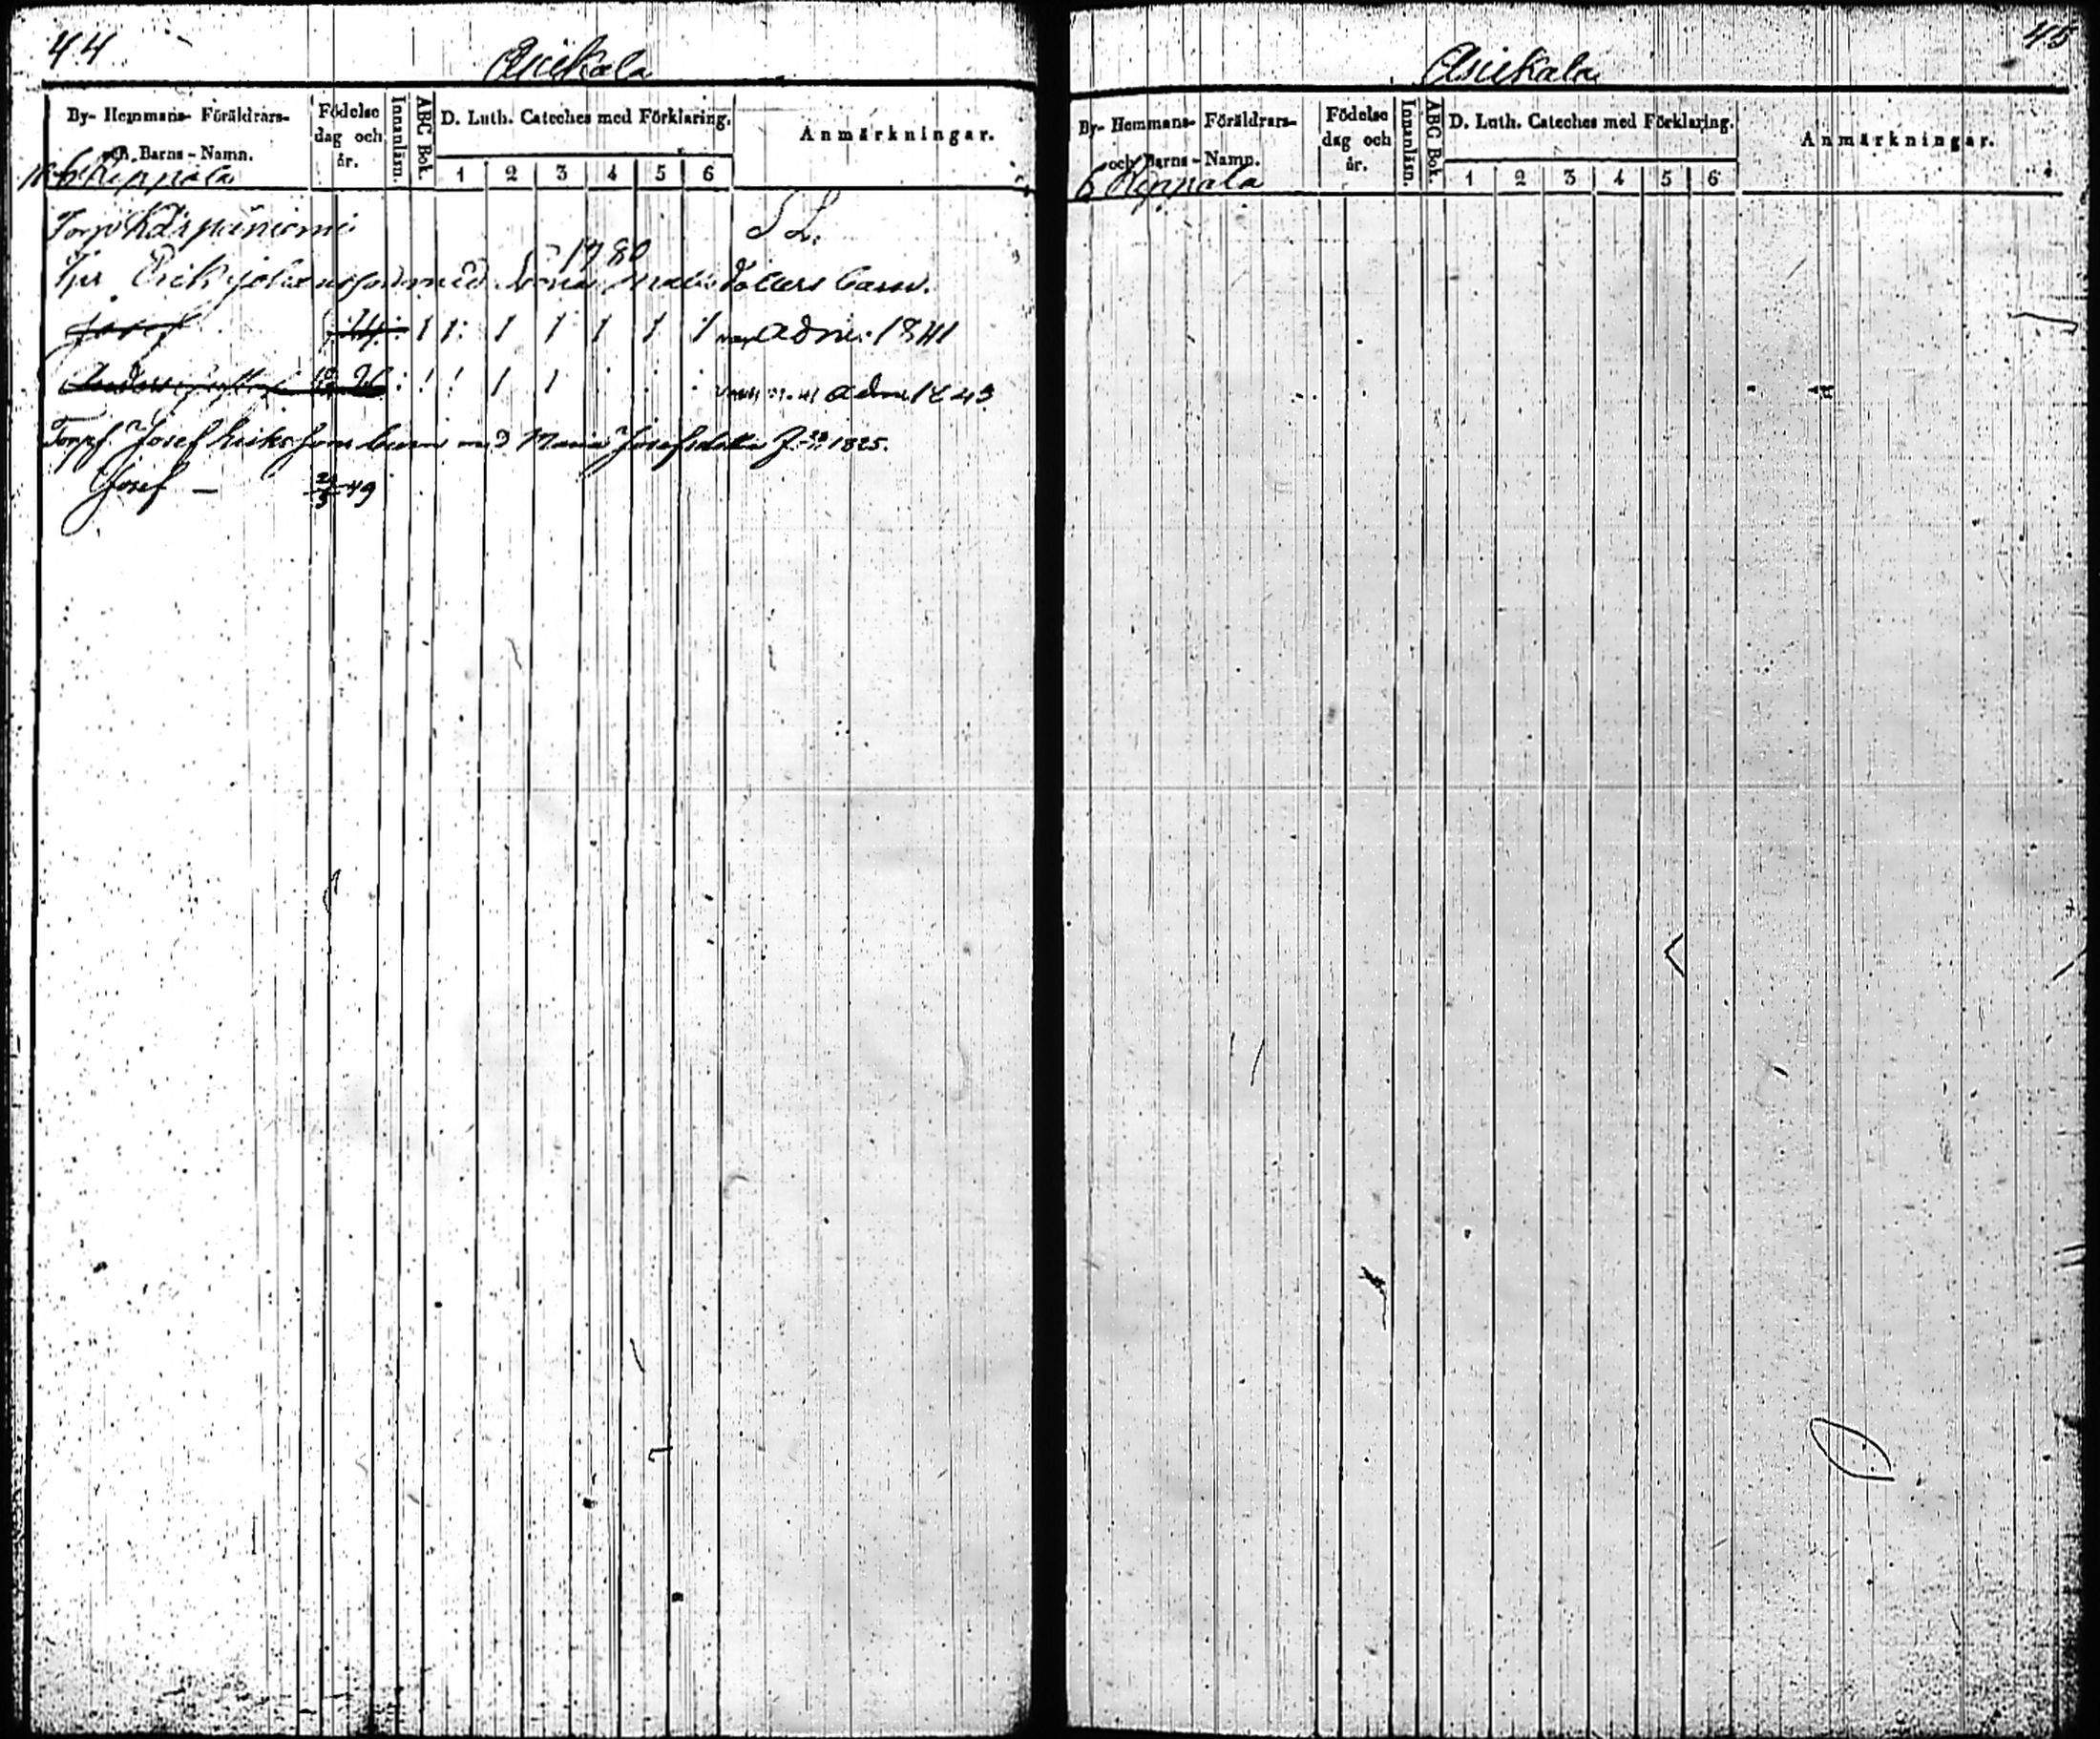 44
Asickala
By- Hemmans- Föräldrars-
och Barns-Namn.
Födelse
dag och
år.
Innanläsn.
ABC Bok.
D. Luth. Cateches med Förklaring.
1 2 3 4 5 6
Anmärkningar.
6 Reppala
Torp
S L.
1780
Erik Johansson med dotters barn.
Josef 24 1 1 1 1 1 1 1 adm: 1841
Anders 26 1 1 1 1 adm 1843
Torpf. Josef Erikssons barn med Maria Josefsdotter f. 1825.
Josef — 49
45
Asickala
By- Hemmans- Föräldrars-
och Barns-Namn.
Födelse
dag och
år.
Innanläsn.
ABC Bok.
D. Luth. Cateches med Förklaring.
1 2 3 4 5 6
Anmärkningar.
6 Reppala